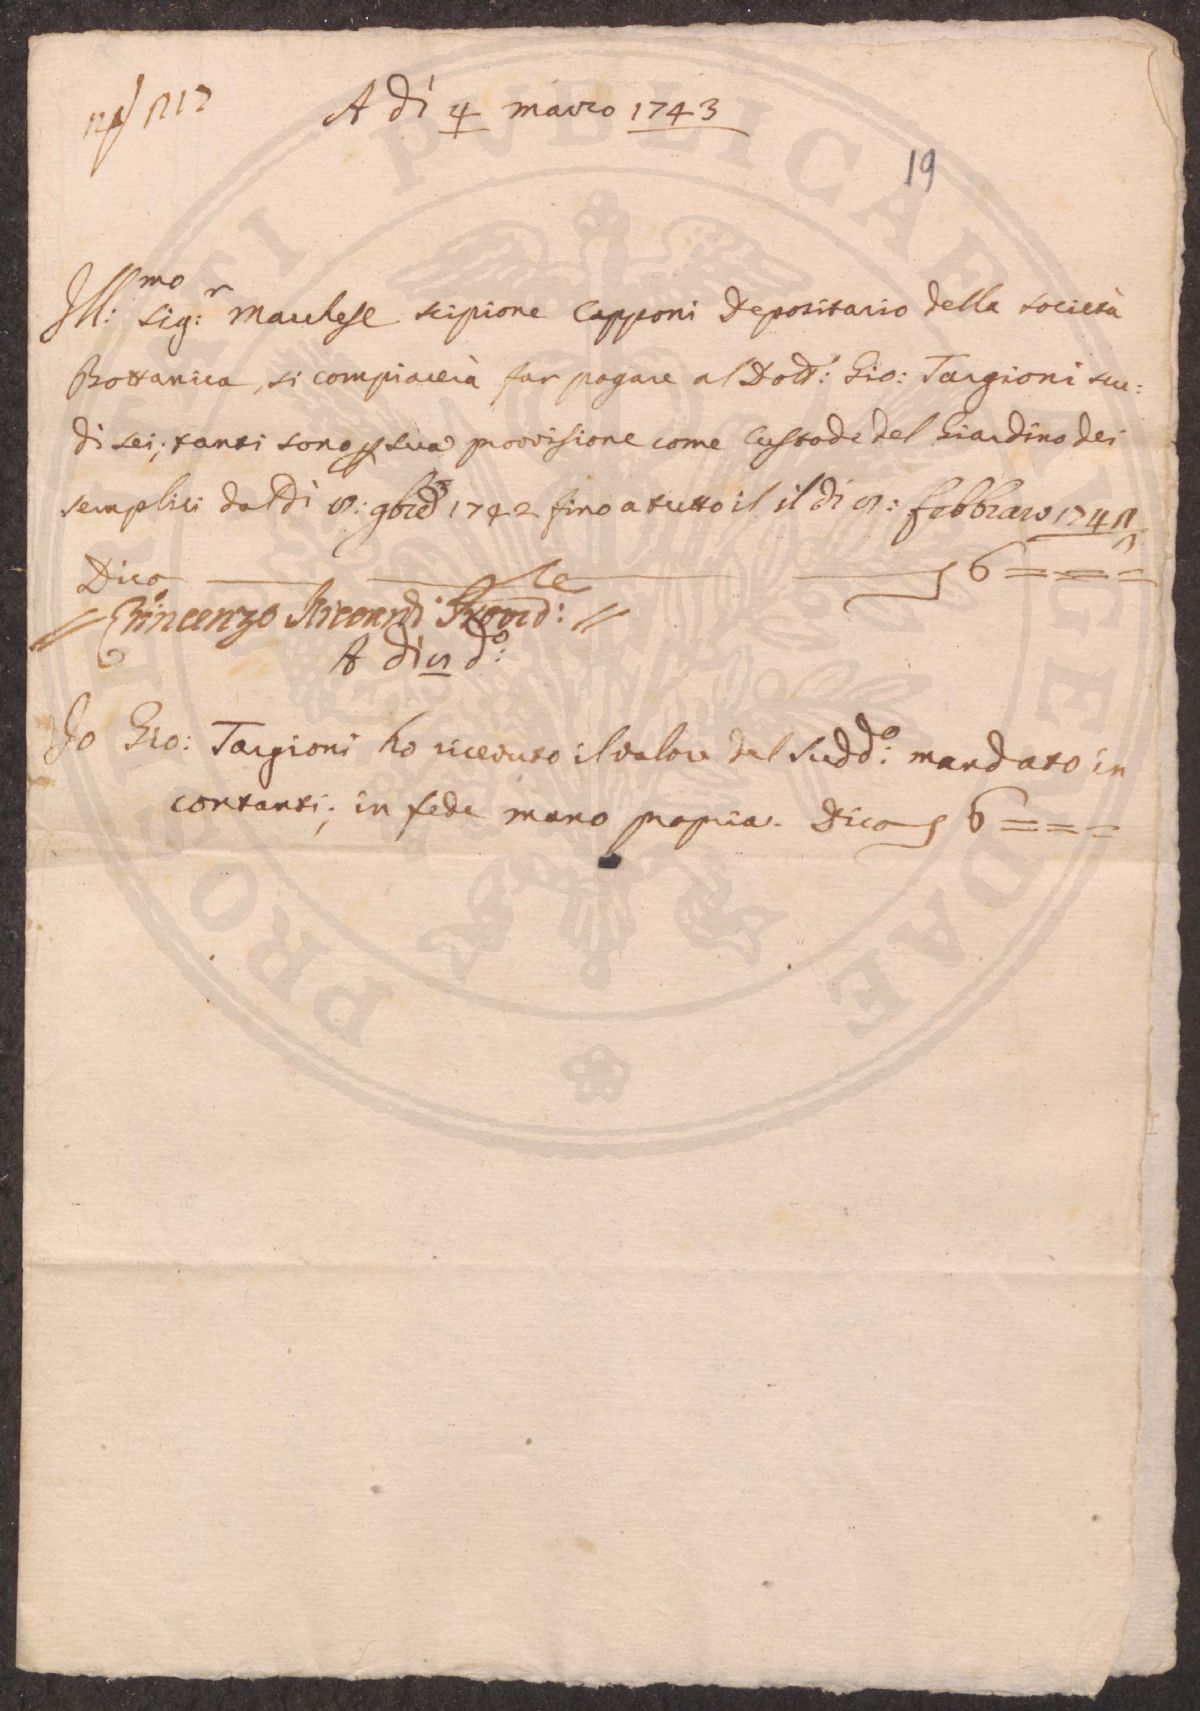 A dì 4 marzo 1743
19
Ill:mo Sig:r Marchese Scipione Capponi Depositario della società
Bottanica, si compiacerà far pagare al Dott: Gio: Targioni scu:
di sei; tanti sono p sua provvisione come Custode del Giardino dei
semplici dal dì 9bre 1742 fino a tutto il il dì febbraio
Dico 6 = = =
Vincenzo Provvd:
A dì d:o
Io Gio: Targioni ho riceuto il valore del Sudd:o mandato in
contanti; in fede mano propria. Dico 6 = = =
PROSPERITATI PVBLICAE AVGENDAE